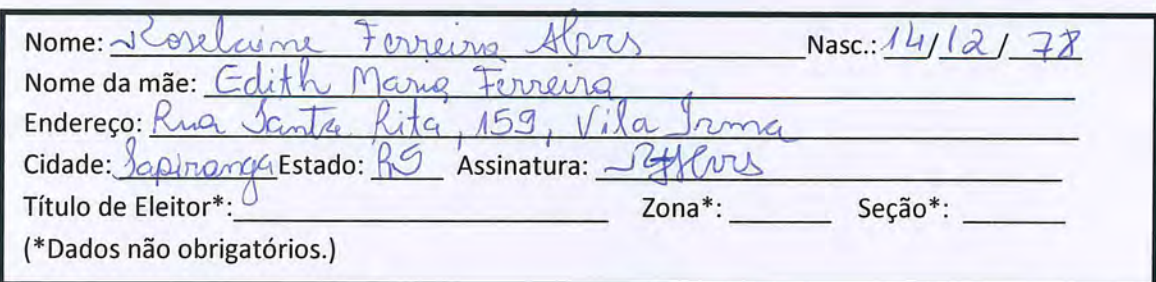 Nome: Roselaine Ferreira Alves Nasc.: 14/12/78
Nome da mãe: Edith Maria Ferreira
Endereço: Rua Santa Rita, 159, Vila Irma
Cidade: Sapiranga Estado: RS Assinatura:
Título de Eleitor*: Zona*: Seção*:
(*Dados não obrigatórios.)